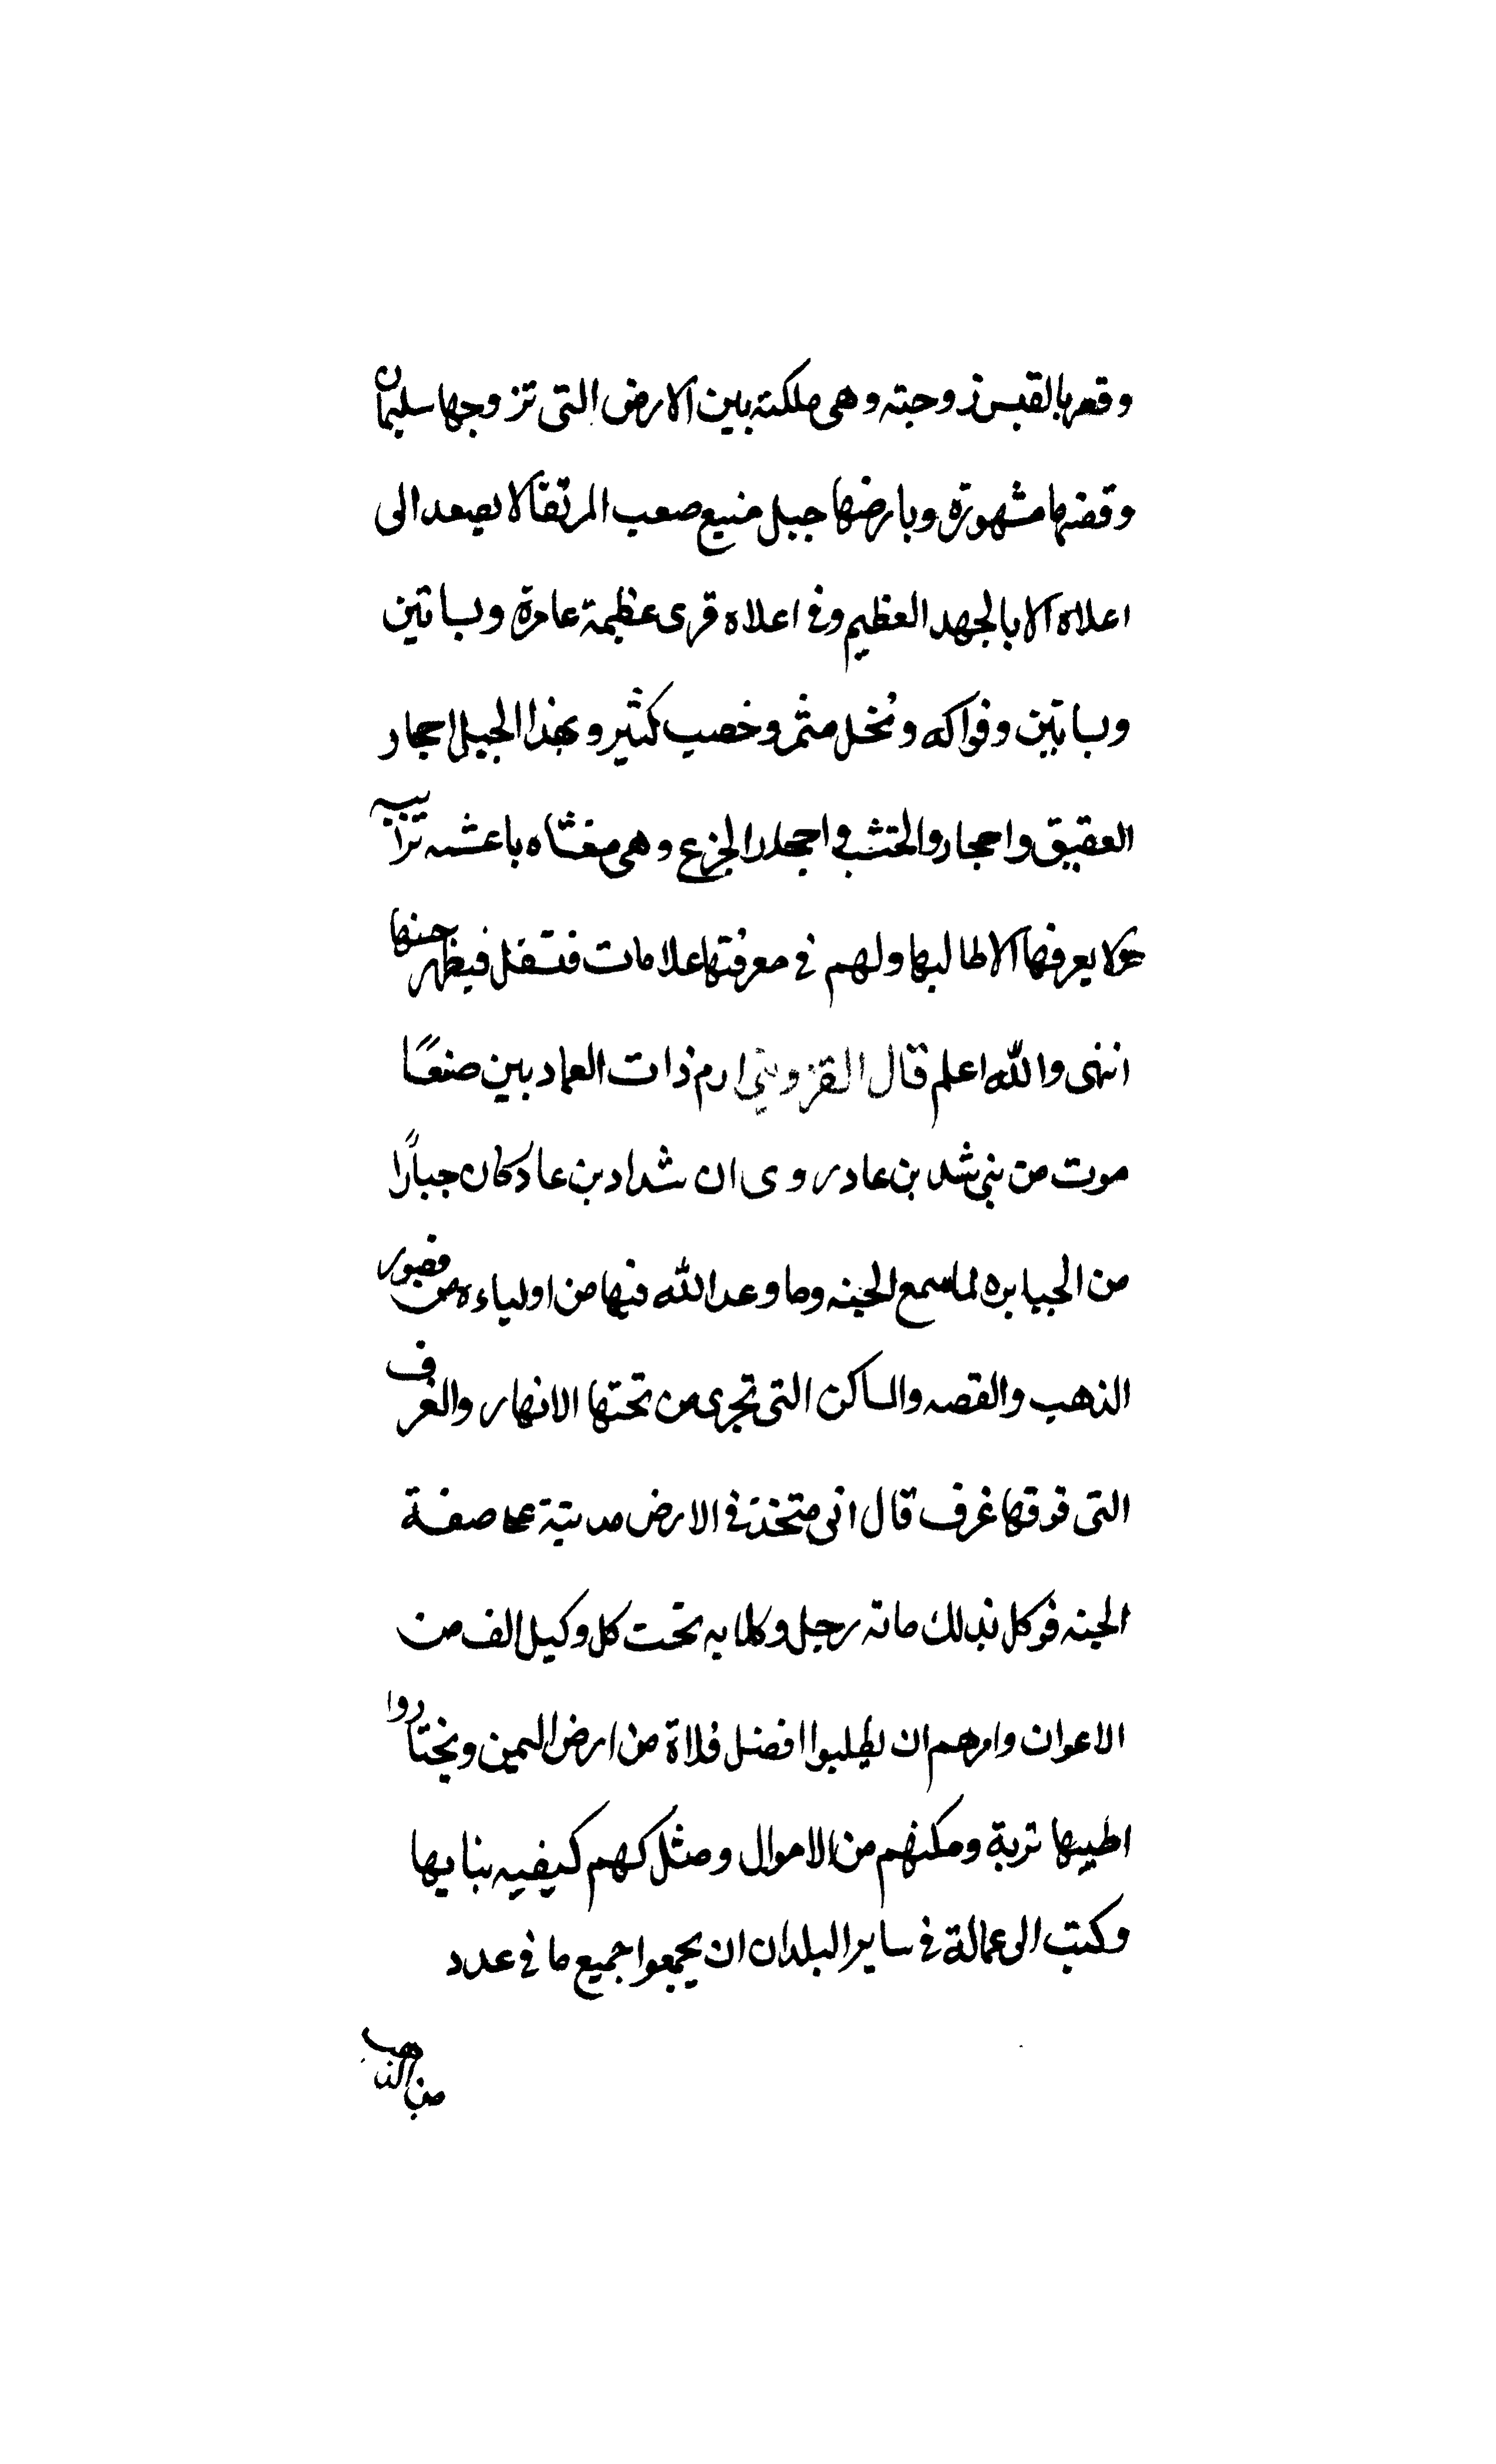 وقصر بالقبس زوجته وهى ملكته بين الارض التى تزوجها سليمان
وقصتها مشهورة وبارضها جبل منيع صعب المرتقا لا يصعد الى
اعلاه الا بالجهد العظيم وفي اعلاه قرى عظيمة عامرة وبساتين
وبساتين وفواكه ونخل مثمر وخصب كثير وبهذا الجبل احجار
العقيق واحجار والحتث في احجار الجزع وهى مغشاه باغشيه ترابيه
ولا يعرفها الا طالبها ولهم في معرفتها علامات فتصقل فيظهر حسنها
انتهى والله اعلم قال القزويني ارم ذات العماد بين صنعًا
موت من بنى شد بن عاد روى ان شداد بن عاد كان جبارًا
من الجبابره لما سمع الجنه وما وعد الله فيها من اولياءه من قصور
الذهب والفضه والساكن التى تجرى من تحتها الانهار والغرف
التى فوقها غرف قال انى متخذ في الارض مدينة على صفة
الجنه فوكل بذلك مائه رجل وكلا به تحت كل وكيل الف من
الاعوان وامرهم ان يطلبوا افضل فلاة من ارض اليمن ويختاروا
اطيبها تربة ومكنهم من الاموال ومثل لهم كيفيه بنايها
وكتب الى عمالة في ساير البلدان ان يجمعوا جميع ما في عدد
من الذهب